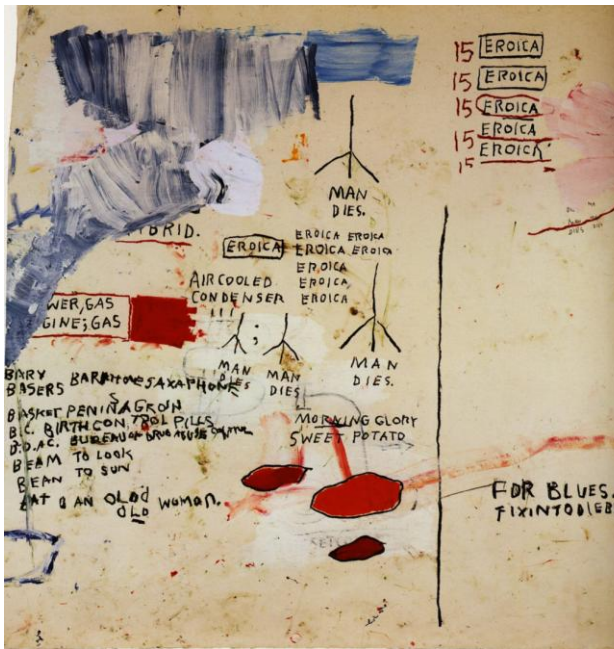 15 EROICA
15 EROICA
15 EROICA
15 EROICA
15 EROICA
MAN
DIES.
YBRID.
EROICA
EROICA EROICA
EROICA EROICA
EROICA
EROICA,
EROICA
AIRCOOLED
CONDENSER
WER,GAS
GINE;GAS
;
MAN
DIES
MAN
DIES
MAN
DIES.
BARY
BASERS BARITONE SAXAPHONE
BASKET PENIN AGROIN
B.C. BIRTHCONTROL PILLS
B.D.AC. BUREAU OF DRUG ABUSE
BEAM TO LOOK
BEAN TO SUN
BAT B AN OLD
OLD WOMAN.
MORNING GLORY
SWEET POTATO
FOR BLUES.
FIXINTODIEB